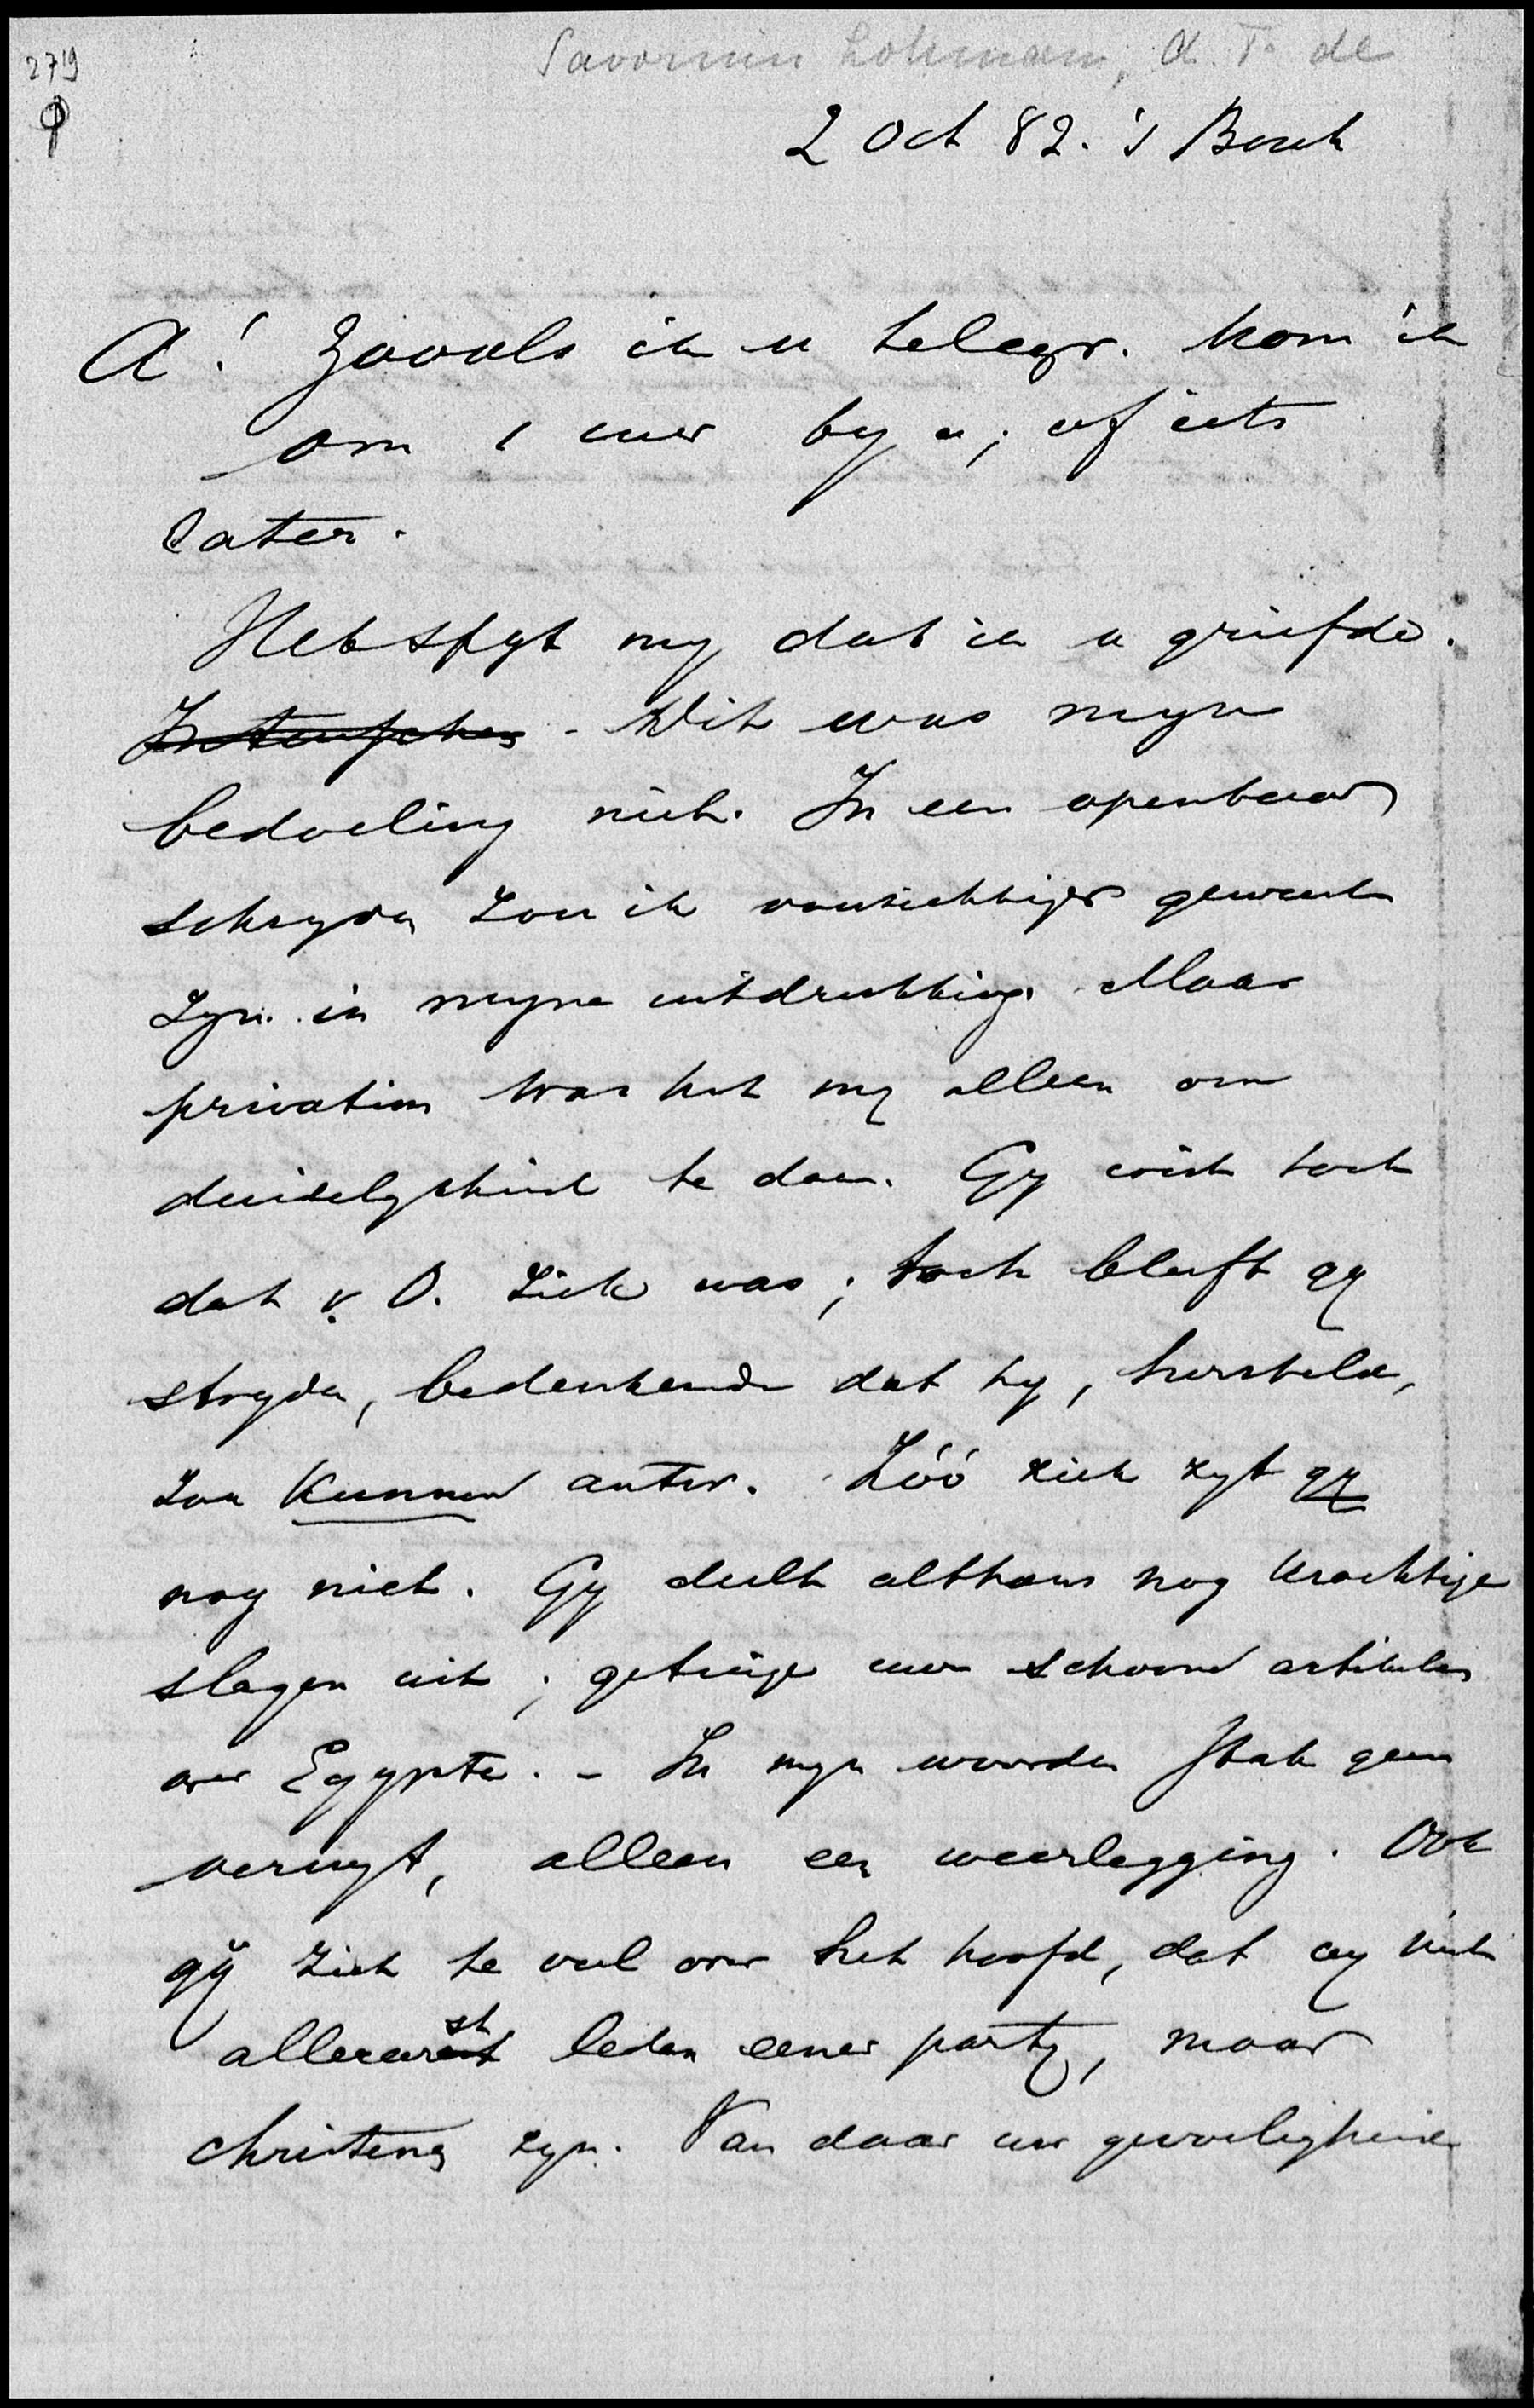 2719
Savornin Lohman, A. F. de
2 Oct 82. 's Bosch
A! Zooals ik u telegr. kom ik
om 1 uur by u; of iets
later.
Het spyt my dat ik u griefde.
Intusschen - Dit was myn
bedoeling niet. In een openbaar
schryven zou ik voorzichtiger geweest
zyn in myne uitdrukking. Maar
privatim was het my alleen om
duidelykheid te doen. Gy wist toch
dat v. O. ziek was; toch bleeft gy
stryden, bedenkende dat hy, hersteld,
zou kunnen antw. Zóó ziek zyt gy
nog niet. Gy deelt althans nog krachtige
slagen uit; getuige uw schoone artikelen
over Egypte. - In myn woorden stak geen
verwyt, alleen een weerlegging. Ook
gÿ ziet te veel over het hoofd, dat wy niet
allereerst leden eener party, maar
christenen zyn. Van daar uw gevoeligheid